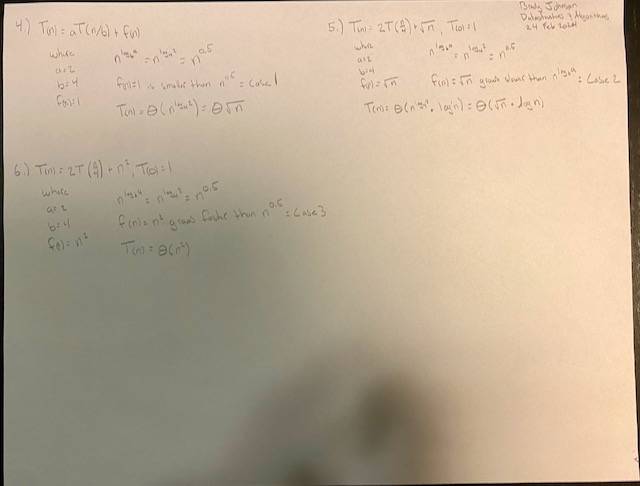 Brady Johnson
Datastructures & Algorithms
24 Feb 2024
4.) T(n) = aT(n/b) + f(n)
where
a=2
b=4
f(n)=1
n^log_b a = n^log_4 2 = n^0.5
f(n)=1 is smaller than n^0.5 = Case 1
T(n) = Θ(n^log_4 2) = Θ√n
5.) T(n) = 2T(n/4) + √n, T(0)=1
where
a=2
b=4
f(n)=√n
n^log_b a = n^log_4 2 = n^0.5
f(n)=√n grows slower than n^log_b a = Case 2
T(n) = Θ(n^log_4 2 · log n) = Θ(√n · log n)
6.) T(n) = 2T(n/4) + n², T(0)=1
where
a=2
b=4
f(n)=n²
n^log_b a = n^log_4 2 = n^0.5
f(n)=n² grows faster than n^0.5 = Case 3
T(n) = Θ(n²)